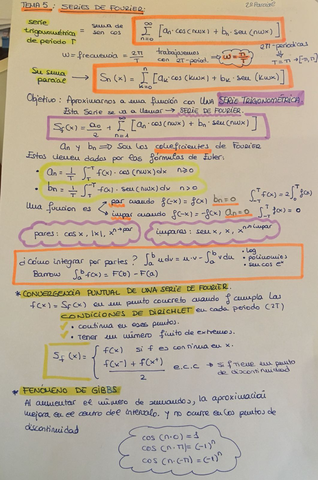 TEMA 5: SERIES DE FOURIER.
serie trigonométrica de período T = suma de sen cos
∞ Σ n=0 [an·cos(nwx) + bn·sen(nwx)]
w = frecuencia = 2π/T trabajaremos con 2T-period. → w = π/T
2π-periódicas
T = π → [-π, π]
Su suma parcial: Sn(x) = n Σ k=0 [ak·cos(kwx) + bk·sen(kwx)]
Objetivo: Aproximarnos a una función con una SERIE TRIGONOMÉTRICA.
Esta serie se va a llamar → SERIE DE FOURIER.
Sf(x) = a0/2 + ∞ Σ n=1 [an·cos(nwx) + bn·sen(nwx)]
an y bn ⇒ son los coeficientes de Fourier
Estos vienen dados por las fórmulas de Euler:
• an = 1/T ∫_-T^T f(x)·cos(nwx) dx n≥0
• bn = 1/T ∫_-T^T f(x)·sen(nwx) dx n>0
Una función es par cuando f(-x) = f(x) bn = 0 ∫_-T^T f(x) = 2∫_0^T f(x)
impar cuando f(-x) = -f(x) an = 0 ∫_-T^T f(x) = 0
pares: cos x, |x|, x^n→par
impares: sen x, x, x^n→impar
¿Cómo integrar por partes? ∫_a^b u dv = u·v - ∫_a^b v du
• log
• polinomios
• sen cos e^x
Barrow ∫_a^b f(x) = F(b) - F(a)
* CONVERGENCIA PUNTUAL DE UNA SERIE DE FOURIER.
f(x) = Sf(x) en un punto concreto cuando f cumpla las
CONDICIONES DE DIRICHLET en cada periodo (2T)
• continua en esos puntos.
• tener un número finito de extremos.
Sf(x) = { f(x) si f es continua en x.
f(x-) + f(x+) / 2 e.c.c → si f tiene un punto de discontinuidad
* FENÓMENO DE GIBBS.
Al aumentar el número de sumandos, la aproximación
mejora en el centro del intervalo. y no ocurre en los puntos de
discontinuidad
cos(n·0) = 1
cos(n·π) = (-1)^n
cos(n·(-π)) = (-1)^n